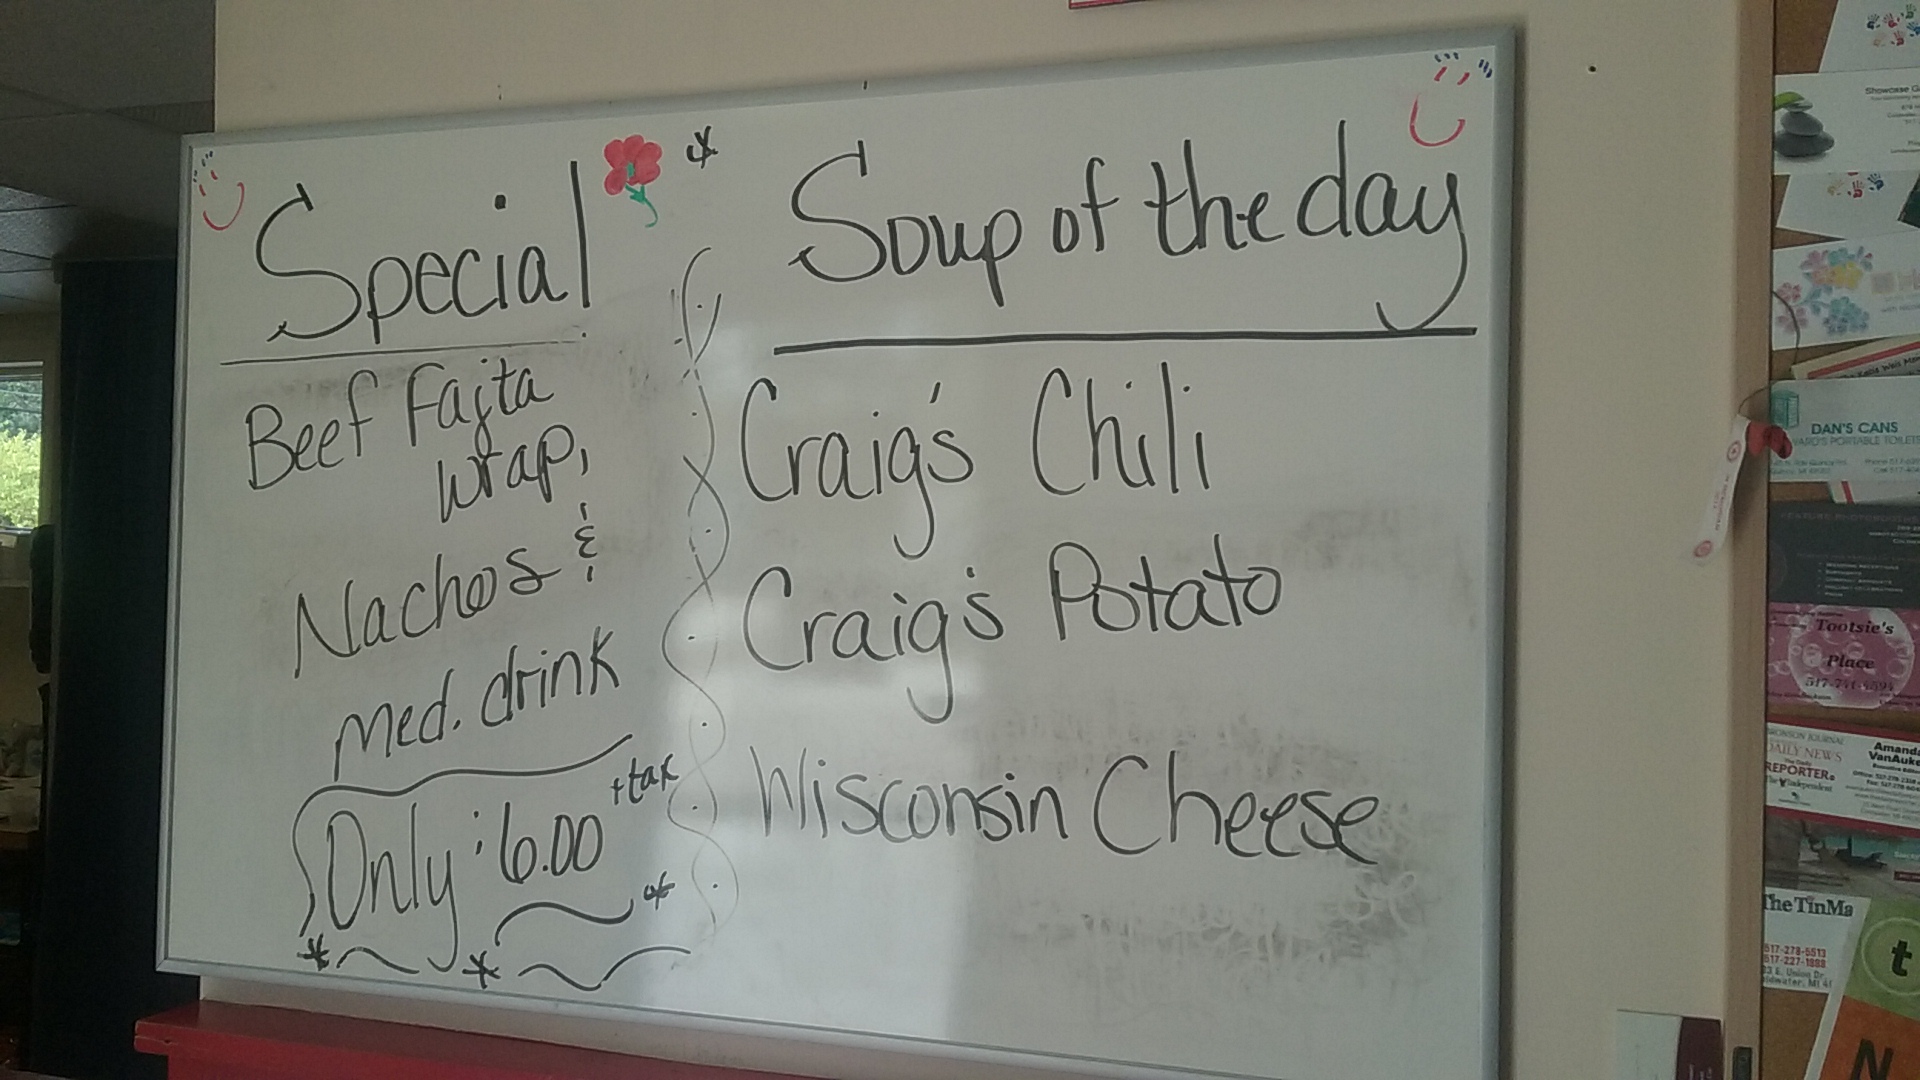 Special
Beef Fajta
wrap,
Nachos &
med. drink
Only : 6.00 +tax
Soup of the day
Craig's Chili
Craig's Potato
Wisconsin Cheese
Showcase
DAN'S CANS
Tootsie's
Place
BRONSON JOURNAL
DAILY NEWS
The Daily
REPORTER
Independent
Amanda
VanAuke
The TinMa
517-278-5513
517-227-1888
E. Union Dr.
t
N